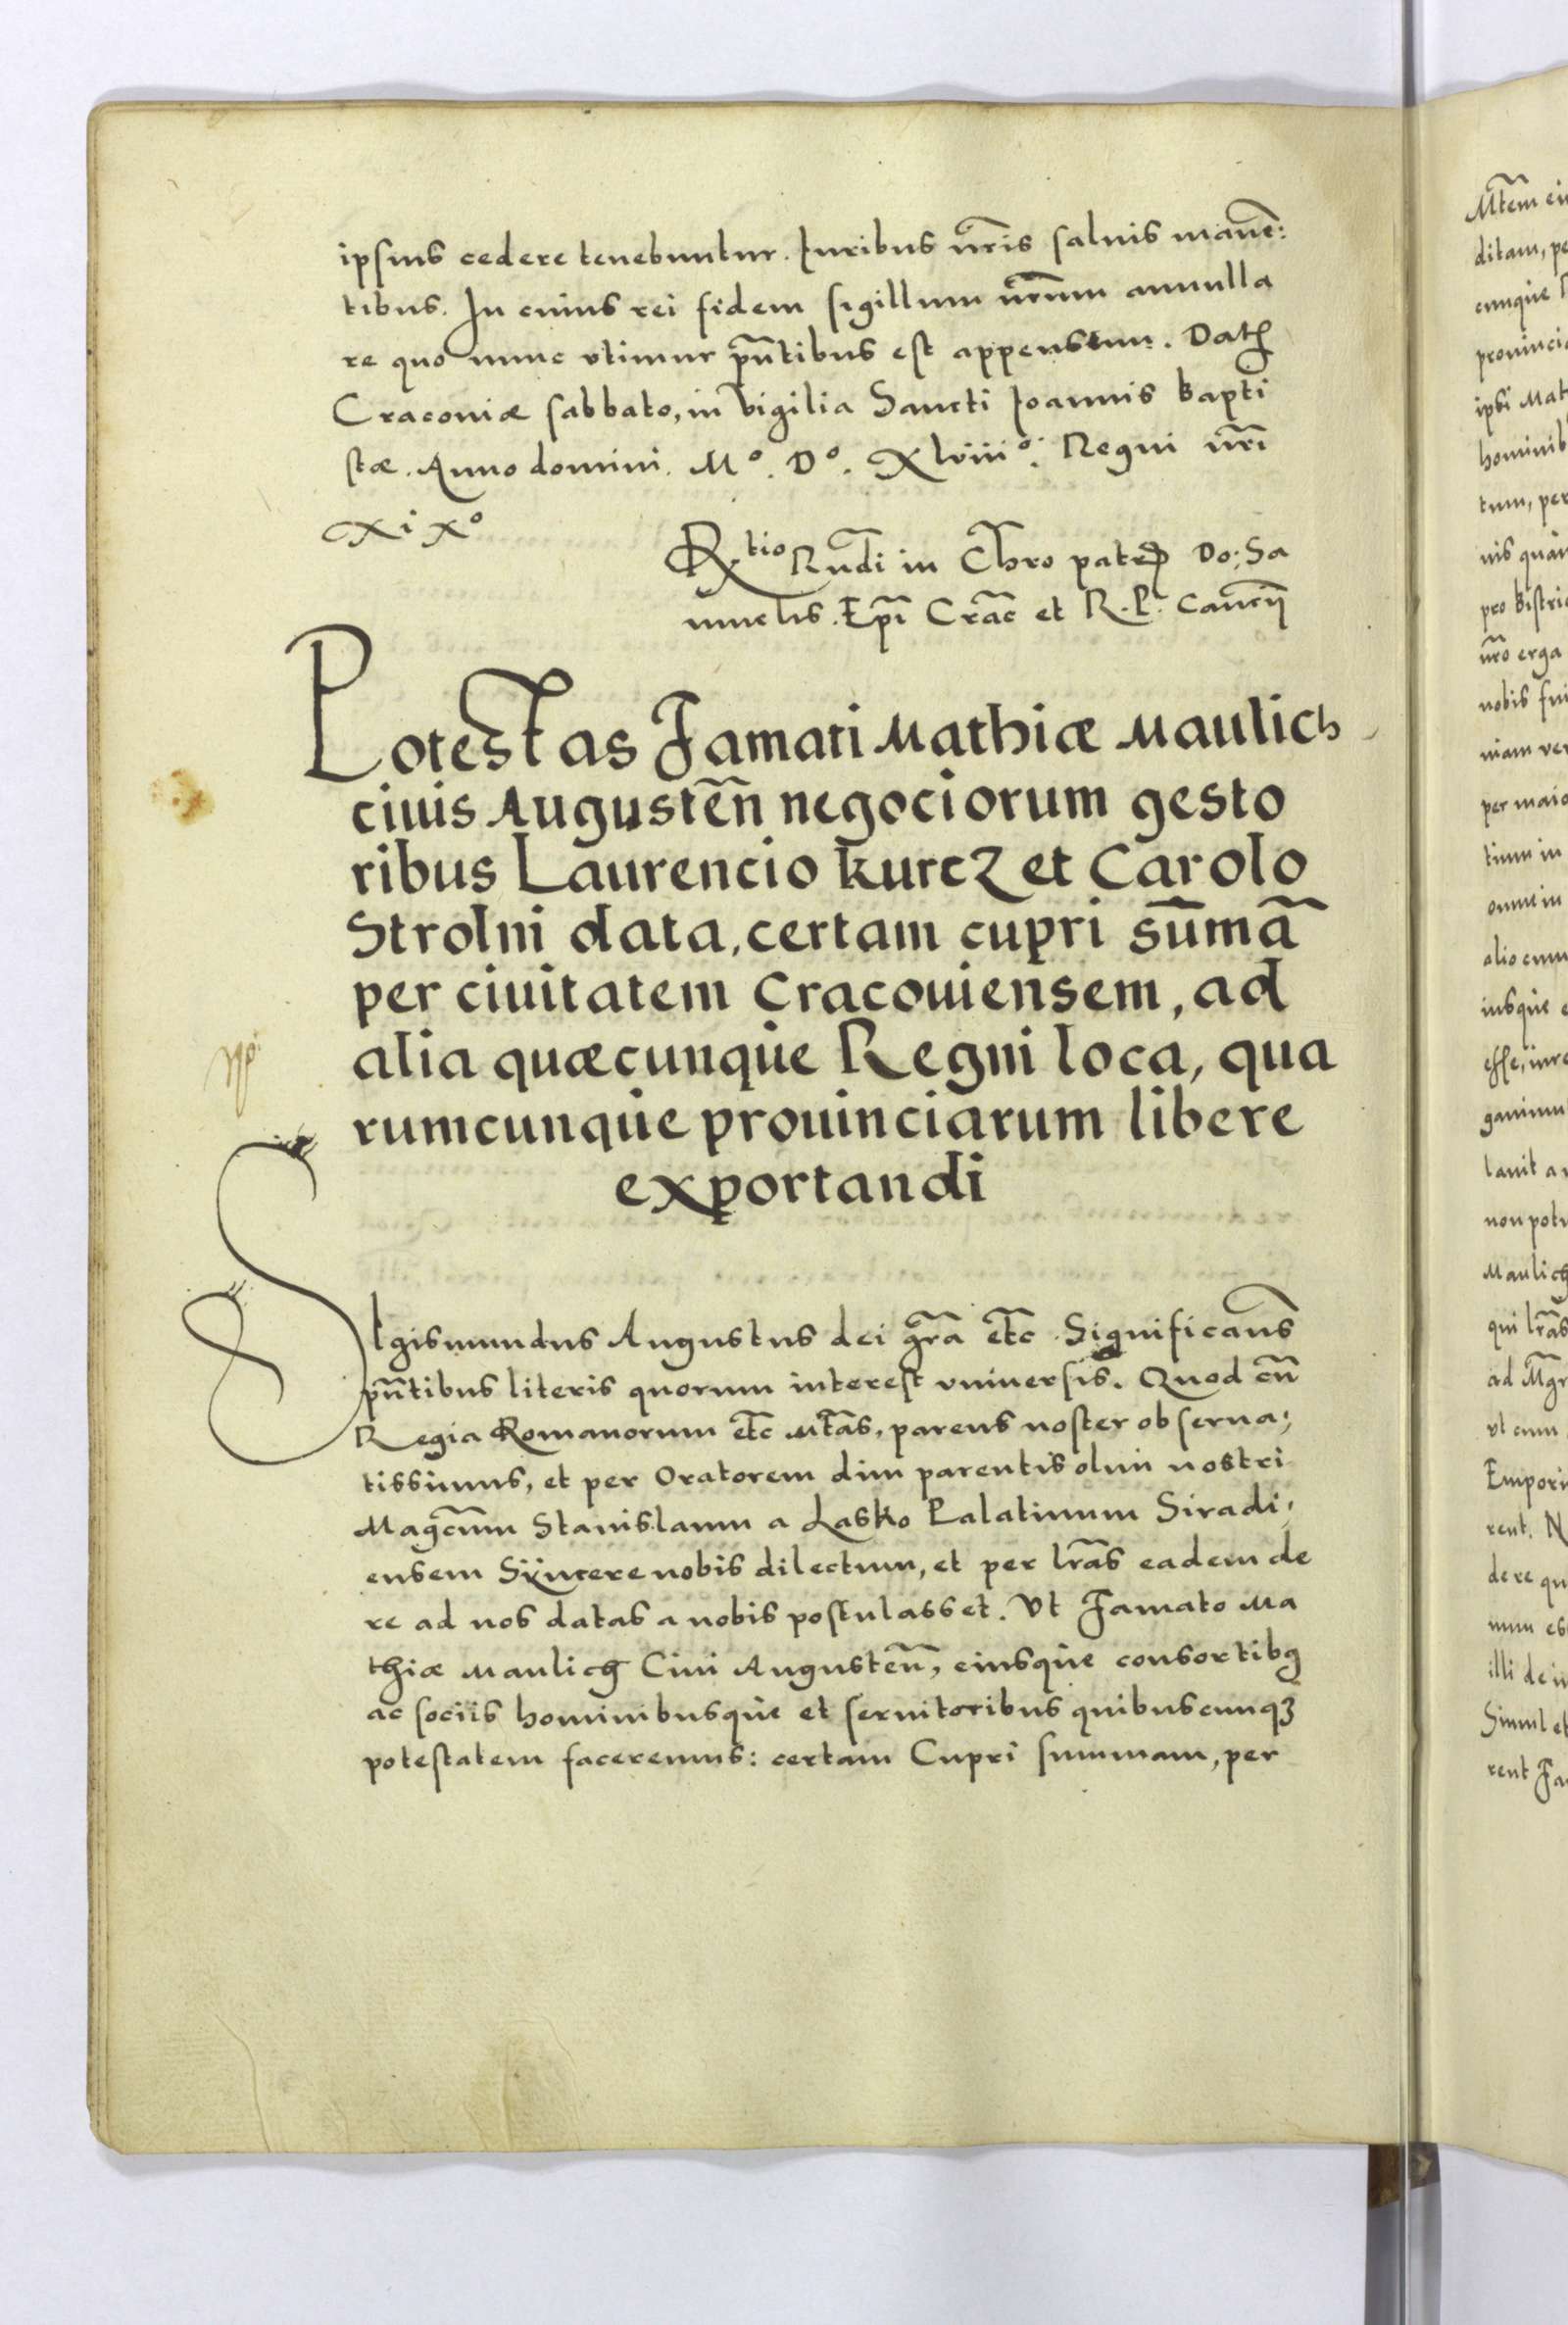 ipsius cedere tenebuntur. Iuribus nr̃is saluis manẽ:
tibus. In cuius rei fidem sigillum nr̃um annulla
re quo nunc vtimur pñtibus est appensum. Dat
Cracouiæ sabbato, in vigilia Sancti Ioannis bapti
stæ. Anno domini. Mº. Dº. Xlviiiº. Regni nr̃i
xixº
Rtio Rñdi in Chr̃o patr Do: Sa
muelis. Ep̃i Crac̃ et R. P. Canc̃ij
Potestas Famati Mathiæ Maulich
ciuis Augusteñ negociorum gesto
ribus Laurencio kurcz et Carolo
Strolni data, certam cupri sũmã
per ciuitatem Cracouiensem, ad
alia quæcunque Regni loca, qua
rumcunque prouinciarum libere
exportandi
SIgismundus Augustus dei gr̃a etc̃ Significamus̃
pñtibus literis quorum interest vniuersis. Quod cũ
Regia Romanorum etc̃ Mt̃as, parens noster obserua:
tissimus, et per Oratorem diui parentis olim nostri
Magc̃um Stanislaum a Lasko Palatinum Siradi,
ensem Syncere nobis dilectum, et per lr̃as eadem de
re ad nos datas a nobis postulasset. Vt Famato Ma
thiæ Maulich Ciui Augusteñ, eiusque consortibꝰ
ac sociis hominibusque et seruitoribus quibuscunqꝫ
potestatem faceremus: certam Cupri summam, per
Mt̃em
ditam,
cunque
ipsi
tum,
nis
pro
nr̃o erga
nobis
niam
tium in
alio
lr̃as
Maulich
qui
ad
vt cum
rent.
dere
illi de
Simul et
rent